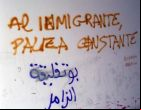 AL INMIGRANTE,
PALIZA CONSTANTE
بوتقليقة
الزامل